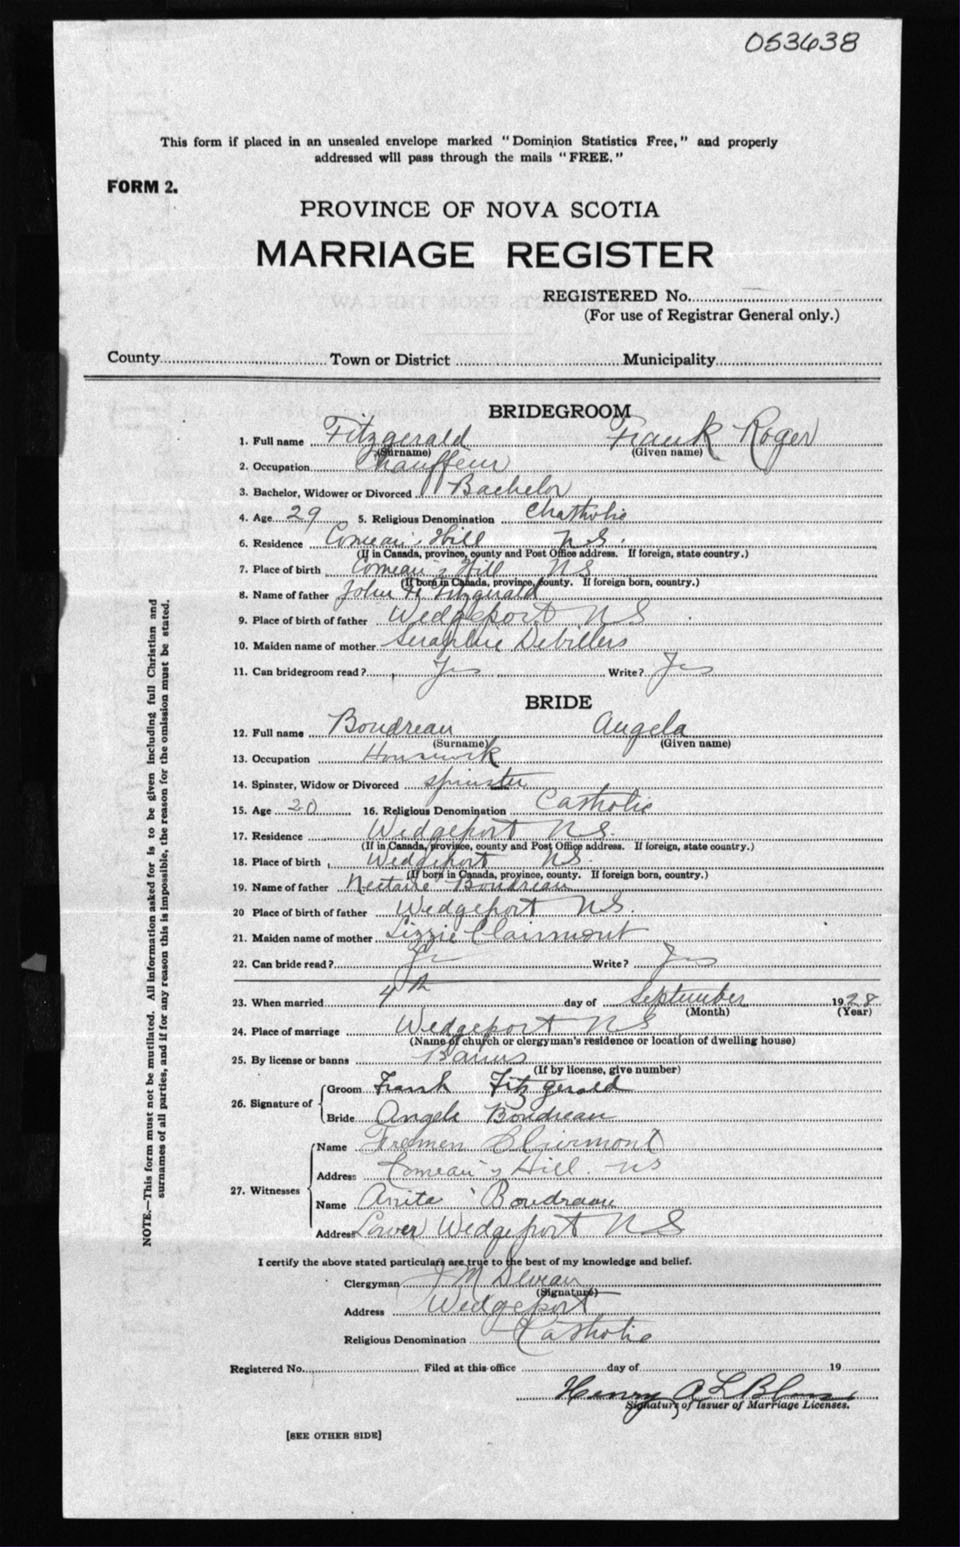 053638
This form if placed in an unsealed envelope marked "Dominion Statistics Free," and properly
addressed will pass through the mails "FREE."
FORM 2.
PROVINCE OF NOVA SCOTIA
MARRIAGE REGISTER
REGISTERED No.
(For use of Registrar General only.)
County Town or District Municipality
BRIDEGROOM
1. Full name Fitzgerald Frank Roger
(Surname) (Given name)
2. Occupation Chauffeur
3. Bachelor, Widower or Divorced Bachelor
4. Age 29 5. Religious Denomination Chatholic
6. Residence Comeau's Hill N.S.
(If in Canada, province, county and Post Office address. If foreign, state country.)
7. Place of birth Comeau's Hill NS
(If born in Canada, province, county. If foreign born, country.)
8. Name of father John H Fitzgerald
9. Place of birth of father Wedgeport NS
10. Maiden name of mother Seraphie Devillers
11. Can bridegroom read? Yes Write? Yes
BRIDE
12. Full name Boudreau Angela
(Surname) (Given name)
13. Occupation Housework
14. Spinster, Widow or Divorced spinster
15. Age 20 16. Religious Denomination Catholic
17. Residence Wedgeport NS.
(If in Canada, province, county and Post Office address. If foreign, state country.)
18. Place of birth Wedgeport NS.
(If born in Canada, province, county. If foreign born, country.)
19. Name of father Nectaire Boudreau
20 Place of birth of father Wedgeport NS.
21. Maiden name of mother Lizzie Clairmont
22. Can bride read? Yes Write? Yes
23. When married 4th day of September 1928
(Month) (Year)
24. Place of marriage Wedgeport NS
(Name of church or clergyman's residence or location of dwelling house)
25. By license or banns Banns
(If by license, give number)
26. Signature of Groom Frank Fitzgerald
Bride Angela Boudreau
27. Witnesses Name Fremen Clairmont
Address Comeau's Hill. NS
Name Anita Boudreau
Address Lower Wedgeport NS
I certify the above stated particulars are true to the best of my knowledge and belief.
Clergyman J M
(Signature)
Address Wedgeport
Religious Denomination Catholic
Registered No. Filed at this office day of 19
Henry A L
Signature of Issuer of Marriage Licenses.
[SEE OTHER SIDE]
NOTE.—This form must not be mutilated. All information asked for is to be given including full Christian and
surnames of all parties, and if for any reason this is impossible, the reason for the omission must be stated.